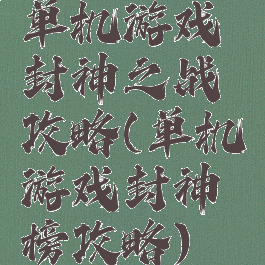 单机游戏
封神之战
攻略(单机
游戏封神
榜攻略)